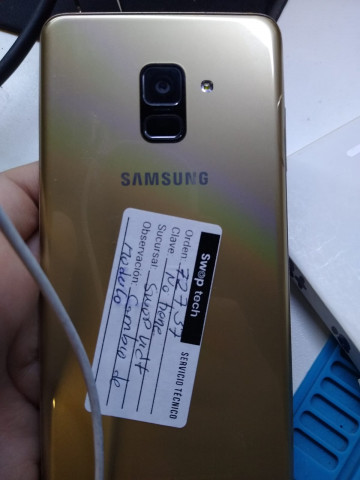 SAMSUNG
Swap tech
SERVICIO TÉCNICO
Orden: 72737
Clave: No tiene
Sucursar: Swap
Observación: Cambio de
Modulo